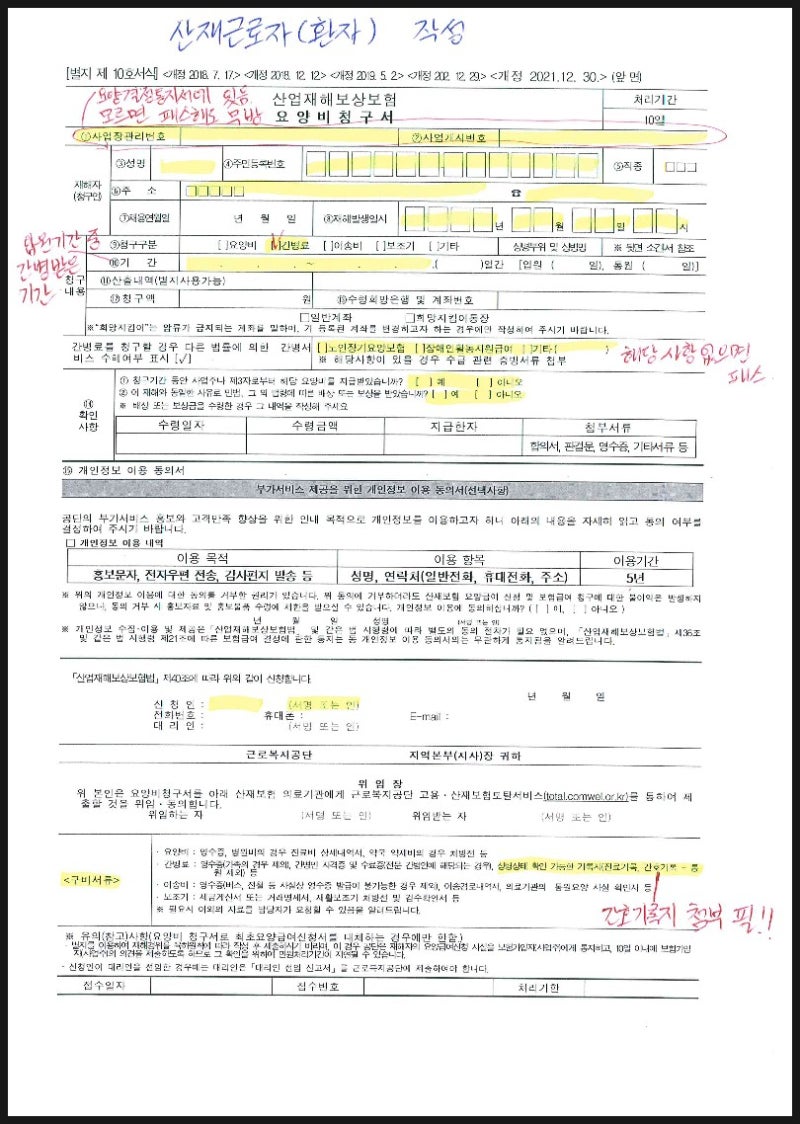 산재근로자(환자) 작성
[별지 제 10호서식] <개정 2018. 7. 17.> <개정 2018. 12. 12> <개정 2019. 5. 2> <개정 202. 12. 29.> <개정 2021. 12. 30.> (앞 면)
요양결정통지서에 있음
모르면 패스해도 무방
산업재해보상보험
요 양 비 청 구 서
처리기간
10일
①사업장관리번호 ②사업개시번호
재해자
(청구인)
③성명 ④주민등록번호 ⑤직종
⑥주 소 ☎
⑦채용연월일 년 월 일 ⑧재해발생일시 년 월 일 시
입원기간 중
간병받은
기간
청구
내용
⑨청구구분 [ ]요양비 [√]간병료 [ ]이송비 [ ]보조기 [ ]기타 상병부위 및 상병명 ※ 뒷면 소견서 참조
⑩기 간 . . ~ . . ( )일간 [입원 ( 일), 통원 ( 일)]
⑪산출내역(별지사용가능)
⑫청 구 액 원 ⑬수령희망은행 및 계좌번호
□일반계좌 □희망지킴이통장
※"희망지킴이"는 압류가 금지되는 계좌를 말하며, 기 등록된 계좌를 변경하고자 하는 경우에만 작성하여 주시기 바랍니다.
간병료를 청구할 경우 다른 법률에 의한 간병서비스 수혜여부 표시 [√]
[ ]노인장기요양보험 [ ]장애인활동지원급여 [ ]기타( )
※ 해당사항이 있을 경우 수급 관련 증명서류 첨부
해당 사항 없으면
패스
⑭
확인
사항
① 청구기간 동안 사업주나 제3자로부터 해당 요양비를 지급받았습니까? [ ] 예 [ ] 아니오
② 이 재해와 동일한 사유로 민법, 그 밖 법령에 따른 배상 또는 보상을 받았습니까? [ ] 예 [ ] 아니오
※ 배상 또는 보상금을 수령한 경우 그 내역을 작성해 주세요
수령일자 수령금액 지급한자 첨부서류
합의서, 판결문, 영수증, 기타서류 등
⑮ 개인정보 이용 동의서
부가서비스 제공을 위한 개인정보 이용 동의서(선택사항)
공단의 부가서비스 홍보와 고객만족 향상을 위한 안내 목적으로 개인정보를 이용하고자 하니 아래의 내용을 자세히 읽고 동의 여부를
결정하여 주시기 바랍니다.
□ 개인정보 이용 내역
이용 목적 이용 항목 이용기간
홍보문자, 전자우편 전송, 감사편지 발송 등 성명, 연락처(일반전화, 휴대전화, 주소) 5년
※ 위의 개인정보 이용에 대한 동의를 거부할 권리가 있습니다. 위 동의에 거부하더라도 산재보험 요양급여 신청 및 보험급여 청구에 대한 불이익은 발생하지
않으나, 동의 거부 시 홍보자료 및 홍보물품 수령에 제한을 받으실 수 있습니다. 개인정보 이용에 동의하십니까? ( [ ] 예, [ ] 아니오 )
년 월 일 성명 (서명 또는 인)
※ 개인정보 수집·이용 및 제공은 「산업재해보상보험법」 및 같은 법 시행령에 따라 별도의 동의 절차가 필요 없으며, 「산업재해보상보험법」 제36조
및 같은 법 시행령 제21조에 따른 보험급여 결정에 관한 통지는 동 개인정보 이용 동의서와는 무관하게 통지됨을 알려드립니다.
「산업재해보상보험법」 제40조에 따라 위와 같이 신청합니다.
년 월 일
신 청 인 : (서명 또는 인)
전화번호 : 휴대폰 : E-mail :
대 리 인 : (서명 또는 인)
근로복지공단 지역본부(지사)장 귀하
위 임 장
위 본인은 요양비청구서를 아래 산재보험 의료기관에게 근로복지공단 고용·산재보험토탈서비스(total.comwel.or.kr)를 통하여 제
출할 것을 위임·동의합니다.
위임하는 자 (서명 또는 인) 위임받는 자 (서명 또는 인)
<구비서류>
· 요양비 : 영수증, 병원비의 경우 진료비 상세내역서, 약국 약제비의 경우 처방전 등
· 간병료 : 영수증(가족의 경우 제외), 간병인 자격증 및 수료증(전문 간병인에 해당되는 경우), 상병상태 확인 가능한 기록지(진료기록, 간호기록 - 통원 제외) 등
· 이송비 : 영수증(버스, 전철 등 사실상 영수증 발급이 불가능한 경우 제외), 이송경로내역서, 의료기관의 통원요양 사실 확인서 등
· 보조기 : 세금계산서 또는 거래명세서, 재활보조기 처방전 및 검수확인서 등
※ 필요시 이외의 자료를 담당자가 요청할 수 있음을 알려드립니다.
간호기록지 첨부 필!!
※ 유의(참고)사항(요양비 청구서로 최초요양급여신청서를 대체하는 경우에만 한함)
· 별지를 이용하여 재해경위를 육하원칙에 따라 작성 후 제출하시기 바라며, 이 경우 공단은 재해자의 요양급여신청 사실을 보험가입자(사업주)에게 통지하고, 10일 이내에 보험가입
자(사업주)의 의견을 제출하도록 하므로 그 확인을 위하여 민원처리기간이 지연될 수 있습니다.
· 신청인이 대리인을 선임한 경우에는 대리인은 「대리인 선임 신고서」를 근로복지공단에 제출하여야 합니다.
접수일자 접수번호 처리기한